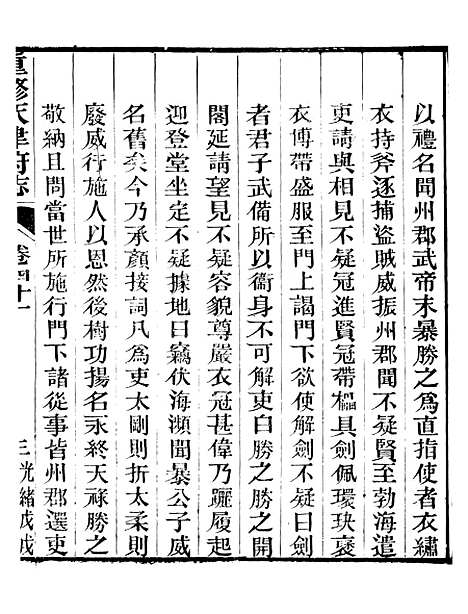 以禮名聞州郡武帝末暴勝之爲直指使者衣繡
衣持斧逐捕盜賊威振州郡聞不疑賢至勃海遣
吏請與相見不疑冠進賢冠帶櫑具劍佩環玦褒
衣博帶盛服至門上謁門下欲使解劍不疑曰劍
者君子武備所以衞身不可解吏白勝之勝之開
閤延請望見不疑容貌尊嚴衣冠甚偉乃躧履起
迎登堂坐定不疑據地曰竊伏海瀕聞暴公子威
名舊矣今乃承顏接詞凡爲吏太剛則折太柔則
廢威行施人以恩然後樹功揚名永終天祿勝之
敬納且問當世所施行門下諸從事皆州郡選吏
重修天津府志
卷四十一
三 光緒戊戌